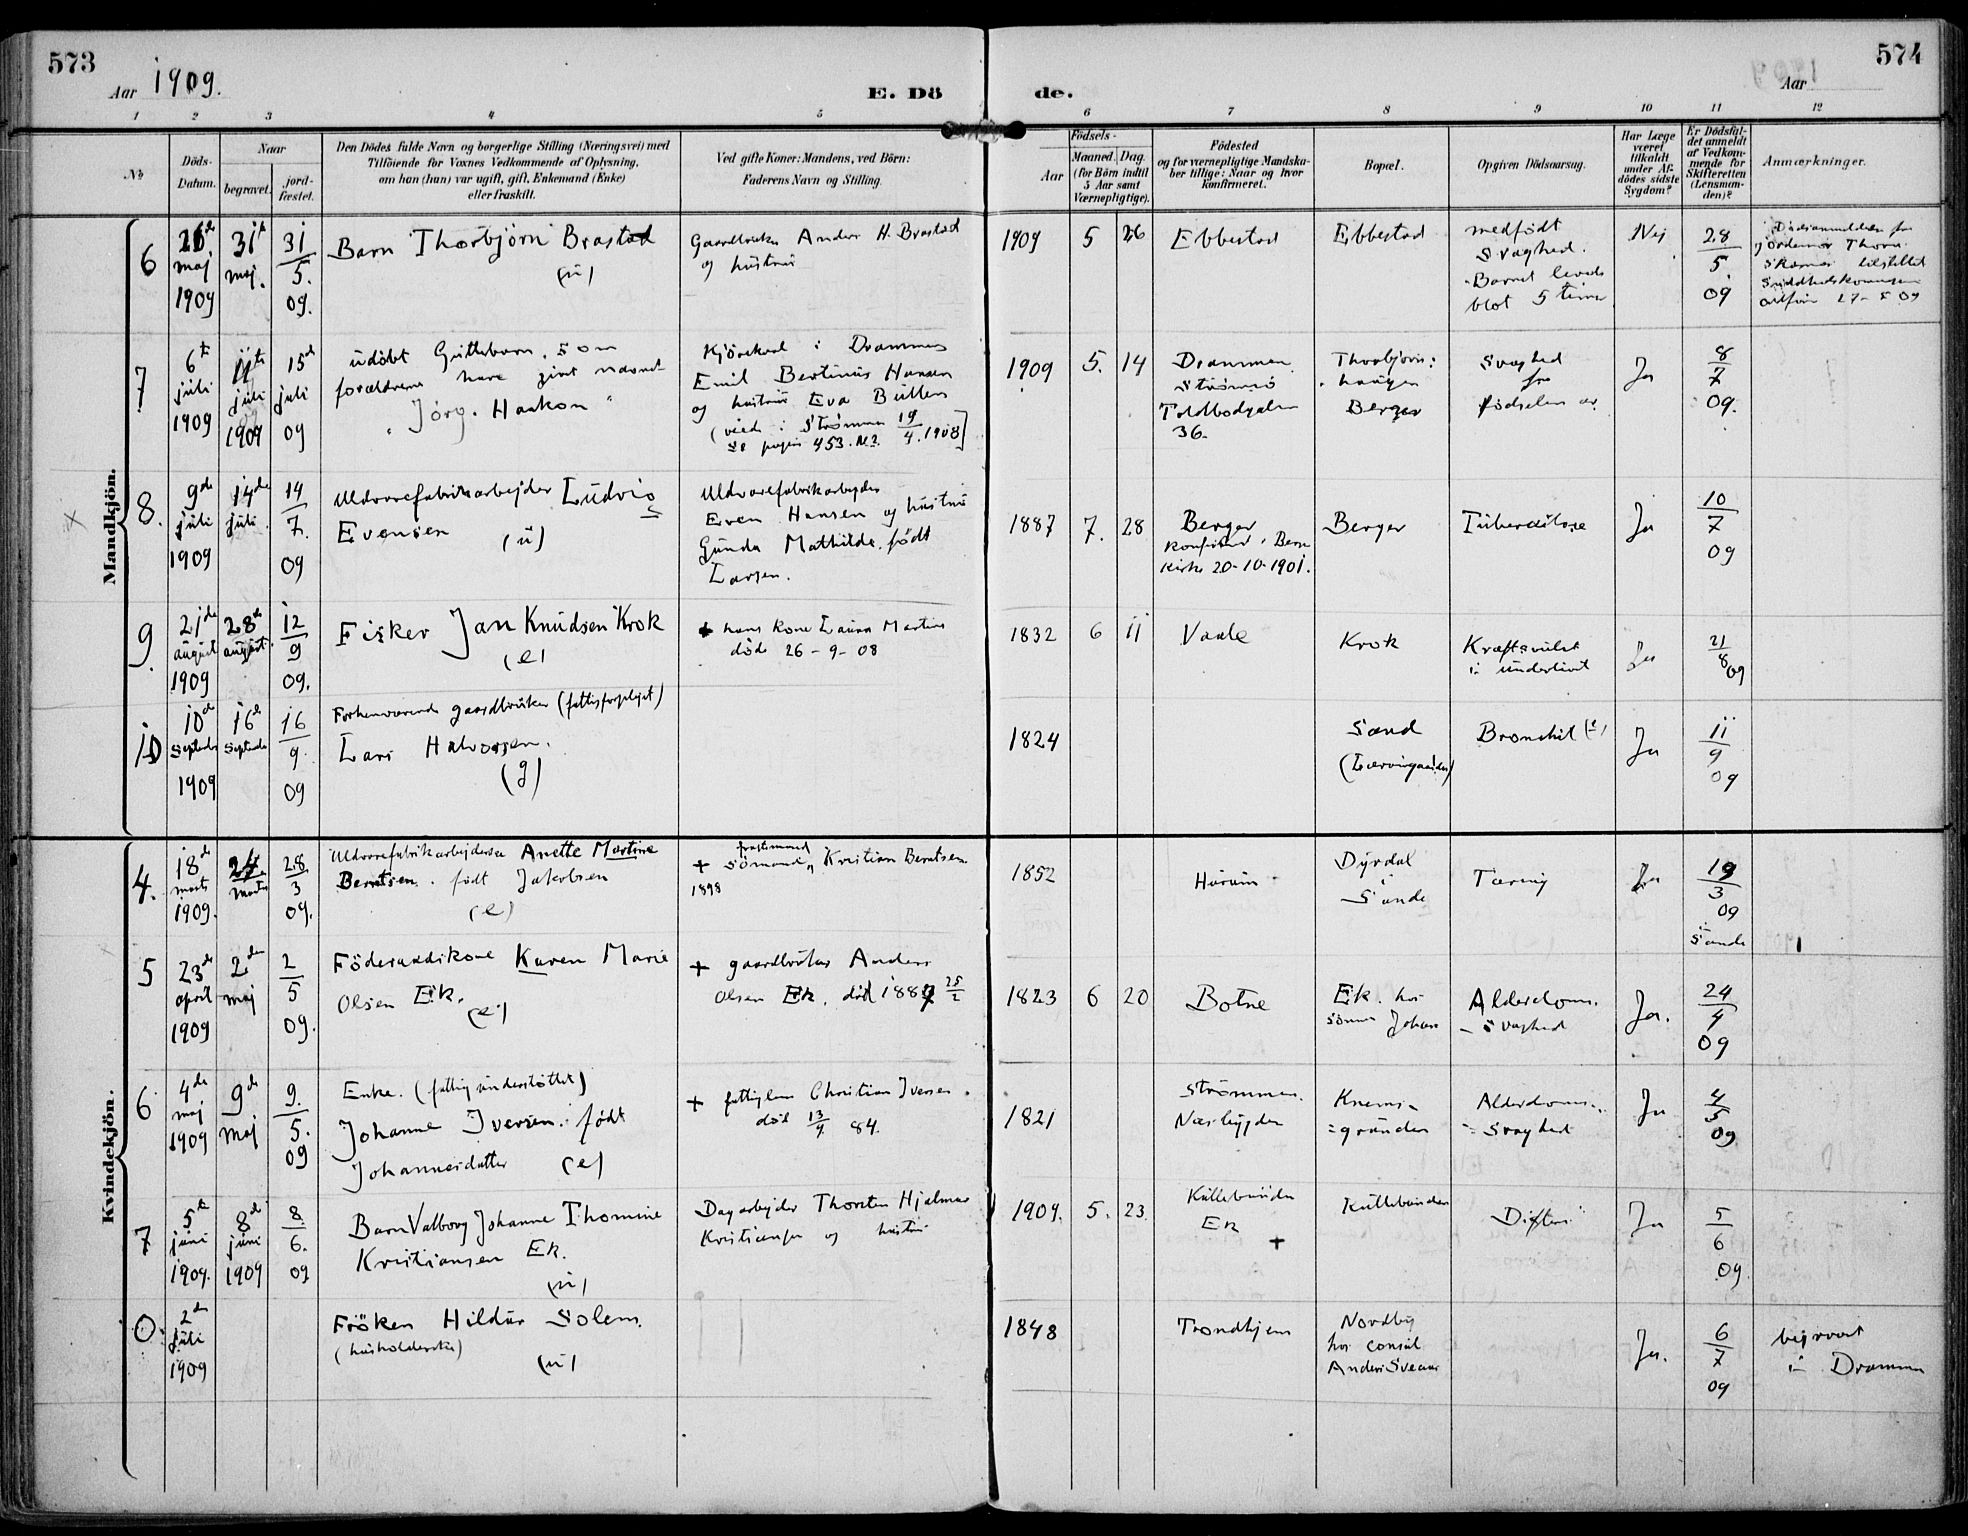 573
Aar 1909.
E. Dö de.
574
Aar
1 2 3 4 5 6 7 8 9 10 11 12
No
Döds-Datum.
Naar
begravet.
jord-fæstet.
Den Dödes fulde Navn og borgerlige Stilling (Næringsvei) med
Tilföiende for Voxnes Vedkommende af Oplysning,
om han (hun) var ugift, gift, Enkemand (Enke)
eller fraskilt.
Ved gifte Koner: Mandens, ved Börn:
Faderens Navn og Stilling.
Födsels-
Aar
Maaned. Dag.
(for Börn indtil
5 Aar samt
Værnepligtige).
Födested
og for værnepligtige Mandska-
ber tillige: Naar og hvor
konfirmeret.
Bopæl.
Opgiven Dödsaarsag.
Har Læge
været
tilkaldt
under Af-
dödes sidste
Sygdom?
Er Dödsfal-
det anmeldt
af Vedkom-
mende for
Skifteretten
(Lensman-
den)?
Anmærkninger.
Mandkjön.
6
26de maj 1909
31te maj.
31/5. 09.
Barn Thorbjörn Brastad
(u)
Gaardbruker Anders H. Brastad
og hustru
1909 5 26
Ebbestad
Ebbestad
medfødt
svaghed.
Barnet levede
blot 5 timer
Nej
28/5 09
7
6te juli 1909
11te juli 1909
15de juli 09
udøbt Guttebarn, som
forældrene have givet navnet
"Jörg. Haakon"
Kjörekarl i Drammen
Emil Bertinus Hansen
og hustru Eva Bullen
(viede i Strømmen 19/4. 1908)
se pagin 453. No 2.
1909 5. 14
Drammen
Strømsø
Toldbodgaten
36.
Thorbjørns-
haugen
Berger
Svaghed
fra
fødselen av
Ja
8/7 09.
8.
9de juli 1909
14de juli
14/7. 09
Uldvarefabrikarbejder Ludvig
Evensen (u)
Uldvarefabrikarbejder
Even Hansen og hustru
Gunda Mathilde født
Larsen.
1887 7. 28
Berger
konfirmd i Berger
Kirke 20-10-1901.
Berger
Tuberculose
Ja
10/7 09
9.
21de august 1909
28de august
12/9 09.
Fisker Jan Knudsen Krok
(e)
+ hans kone Laura Martine
døde 26-9-08
1832 6 11
Vaale
Krok
Kræftsvulst
i underlivet
Ja
21/8 09
10
10de September 1909
16de September
16/9. 09
Forhenværende gaardbruker (fattigforpleiet)
Lars Halvorsen.
(g)
1824
Sand
Bronchit
Ja
11/9 09
Kvindekjön.
4.
18de marts 1909.
24de marts
28/3 09.
Uldvarefabrikarbejderske Anette Martine
Berntsen. født Jakobsen
(e)
+ Sömand, Kristian Berntsen.
1898
1852
Hurum
Dyrdal
i
Sande
Tæring
Ja
19/3 09
i Sande
5
23de april 1909
2den maj
2/5 09.
Föderaadskone Karen Marie
Olsen Ek.
(e)
+ gaardbruker Anders
Olsen Ek, död 1889 25/2
1823 6 20
Botne
Ek. hos
sønnen Johan
Alderdoms-
- svaghed
Ja.
24/4 09
6
4de maj 1909
9de maj
9./5. 09
Enke. (fattigunderstöttet)
Johanne Iversen. født
Johannesdatter (e)
+ fattiglem Christian Iversen.
død 13/4 84.
1821
Strømmen.
Nesbygden
Knems-
-grunden
Alderdoms-
- svaghed
Ja
4/5 09
7
5te juni 1909.
8de juni 1909
8/6. 09
Barn Valborg Johanne Thomine
Kristiansen Ek.
(u)
Dagarbejder Thorsten Hjalmar
Kristiansen og hustru
1909. 5. 23.
Kullebunden
Ek
+
Kullebunden
Difteri
Ja
5/6 09.
0.
2den juli 1909
Fröken Hildur Solem.
(husholderske)
(u)
1848
Trondhjem
Nordby
hos consul
Anders Sveaas
Ja.
6/7 09
begravet
i Drammen